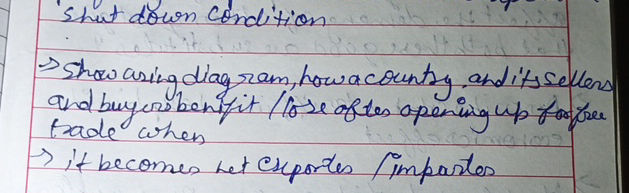 shut down condition
→ show using diagram, how a country and its sellers
and buyers benifit / lose after opening up for free
trade when
→ it becomes net exporter / importer